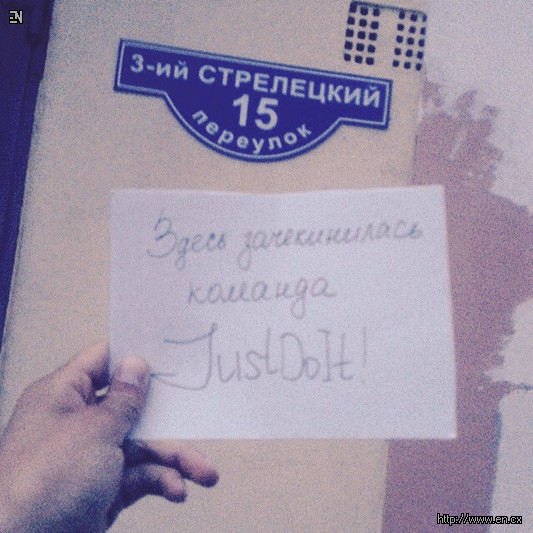 EN
3-ий СТРЕЛЕЦКИЙ
15
переулок
Здесь зачекинилась
команда
JustDoIt!
http://www.en.cx